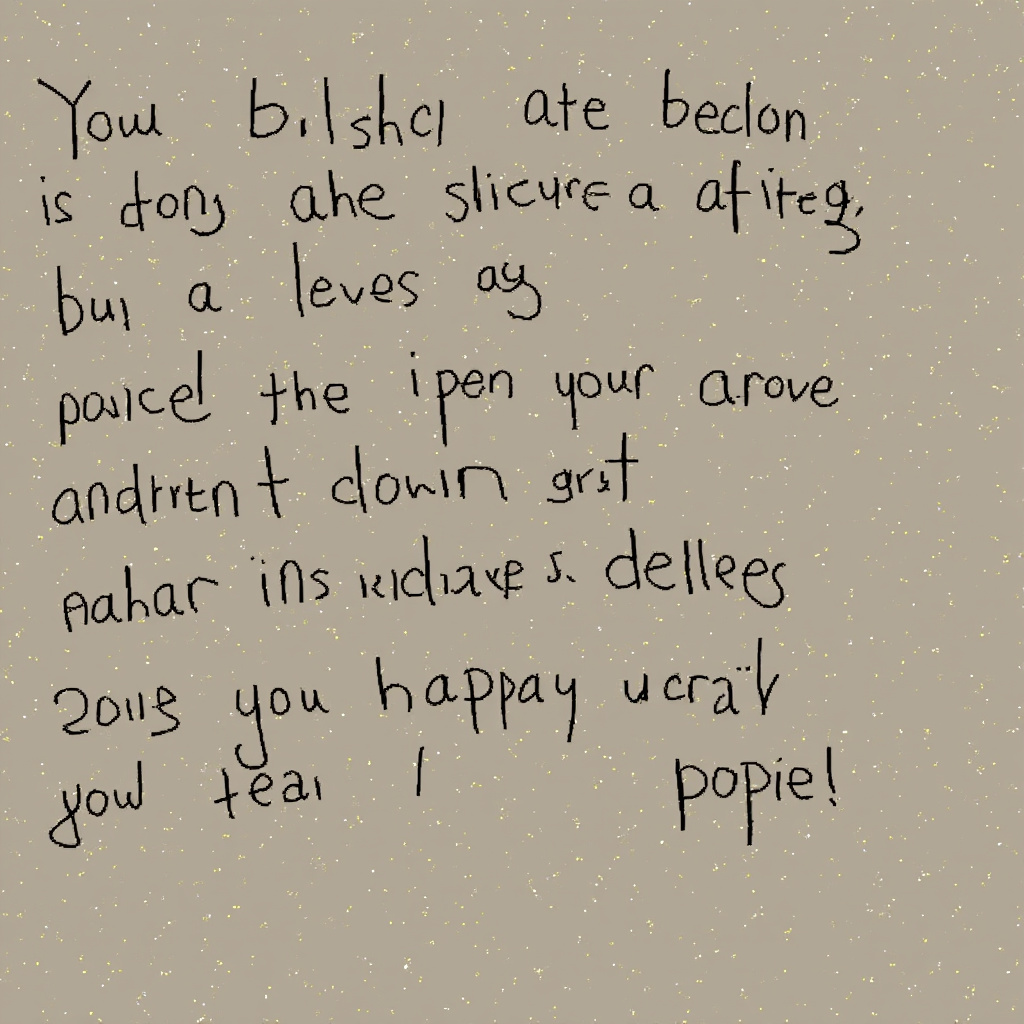 You bilshcl ate beclon
is dong ahe slicure a afiteg,
bui a leves ay
poaicel the ipen your arove
andtrtent clowin grst
Aahar ins dellees
you happay
youl teai I popie!